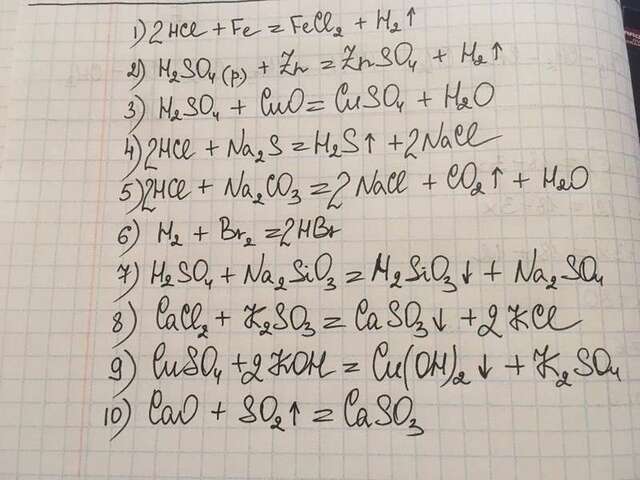 1) 2HCl + Fe = FeCl₂ + H₂↑
2) H₂SO₄(р) + Zn = ZnSO₄ + H₂↑
3) H₂SO₄ + CuO = CuSO₄ + H₂O
4) 2HCl + Na₂S = H₂S↑ + 2NaCl
5) 2HCl + Na₂CO₃ = 2NaCl + CO₂↑ + H₂O
6) H₂ + Br₂ = 2HBr
7) H₂SO₄ + Na₂SiO₃ = H₂SiO₃↓ + Na₂SO₄
8) CaCl₂ + K₂SO₃ = CaSO₃↓ + 2KCl
9) CuSO₄ + 2KOH = Cu(OH)₂↓ + K₂SO₄
10) CaO + SO₂↑ = CaSO₃